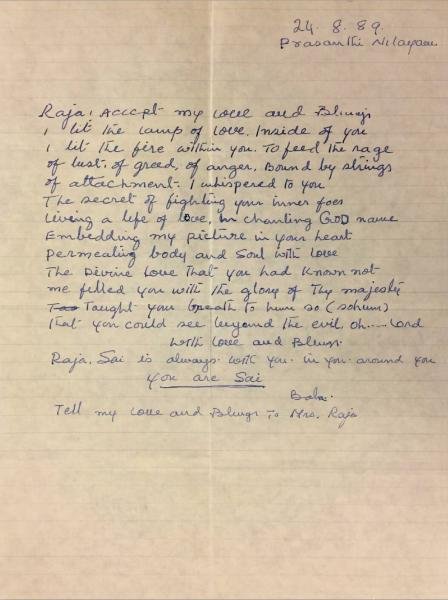 24. 8. 89.
Prasanthi Nilayam
Raja! Accept my love and Blings
I lit the lamp of love. Inside of you
I lit the fire within you. To feed the rage
of lust. of greed, of anger, Bound by strings
of attachment. I whispered to you
The secret of fighting your inner foes
Living a life of love, in chanting GOD name
Embedding my picture in your heart
Permeating body and soul with love
The Divine love That you had known not
me filled you with the glory of Thy majesty
Taught you breath to hum so (sohum)
That you could see beyond the evil oh.... Lord
with love and Blings.
Raja. Sai is always with you. in you around you
You are Sai
Baba.
Tell my love and Blings To Mrs. Raja